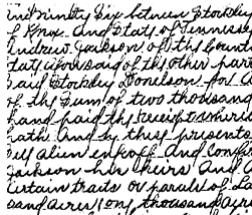 and Ninety Six between Stockley
of Knox And State of Tennessee
Andrew Jackson of the County
State aforesaid of the other part
said Stockley Donelson for a
of the Sum of two thousand
hand paid the receipt where
hath And by these presents
sell alien enfeoff and Conf
Jackson his heirs And
Certain tracts or parals of La
sand acres (one thousand ac